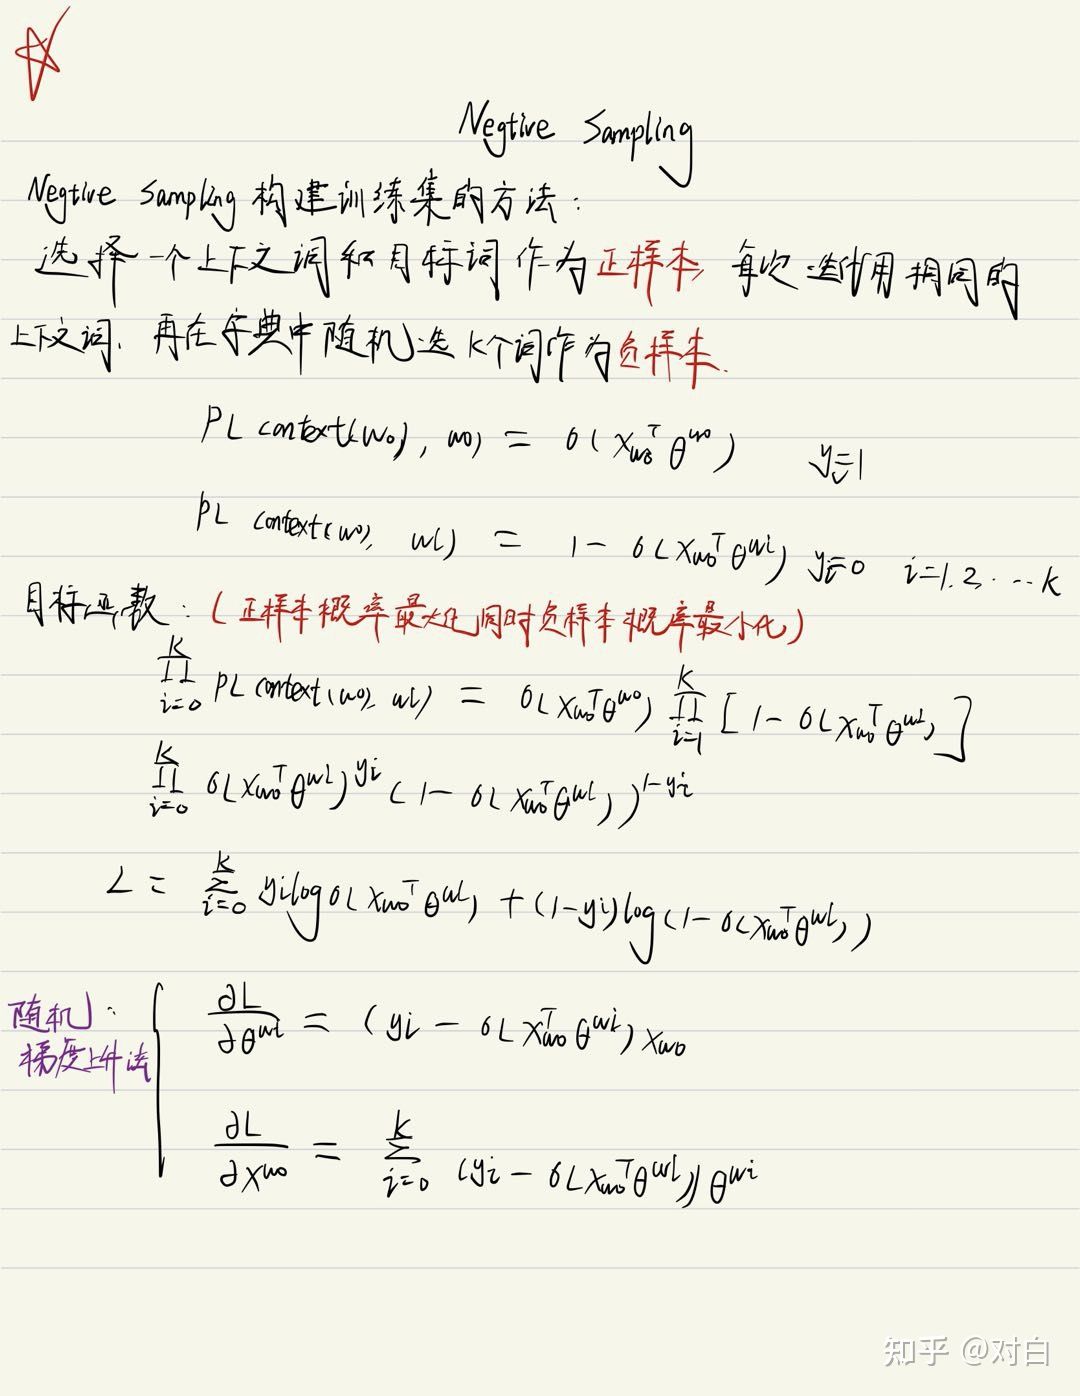 Negtive Sampling
Negtive Sampling 构建训练集的方法：
选择一个上下文词和目标词作为正样本，每次迭代用相同的
上下文词，再在字典中随机选K个词作为负样本.
P(context(w₀), w₀) = σ(x_{w₀}^T θ^{w₀}) yᵢ=1
P(context(w₀), wᵢ) = 1 - σ(x_{w₀}^T θ^{wᵢ}) yᵢ=0 i=1,2,...k
目标函数：(正样本概率最大化,同时负样本概率最小化)
∏_{i=0}^{K} P(context(w₀), wᵢ) = σ(x_{w₀}^T θ^{w₀}) ∏_{i=1}^{K} [1 - σ(x_{w₀}^T θ^{wᵢ})]
∏_{i=0}^{K} σ(x_{w₀}^T θ^{wᵢ})^{yᵢ} (1 - σ(x_{w₀}^T θ^{wᵢ}))^{1-yᵢ}
L = ∑_{i=0}^{K} yᵢlogσ(x_{w₀}^T θ^{wᵢ}) + (1-yᵢ)log(1-σ(x_{w₀}^T θ^{wᵢ}))
随机：
梯度上升法
∂L/∂θ^{wᵢ} = (yᵢ - σ(x_{w₀}^T θ^{wᵢ})) x_{w₀}
∂L/∂x^{w₀} = ∑_{i=0}^{K} (yᵢ - σ(x_{w₀}^T θ^{wᵢ})) θ^{wᵢ}
知乎 @对白